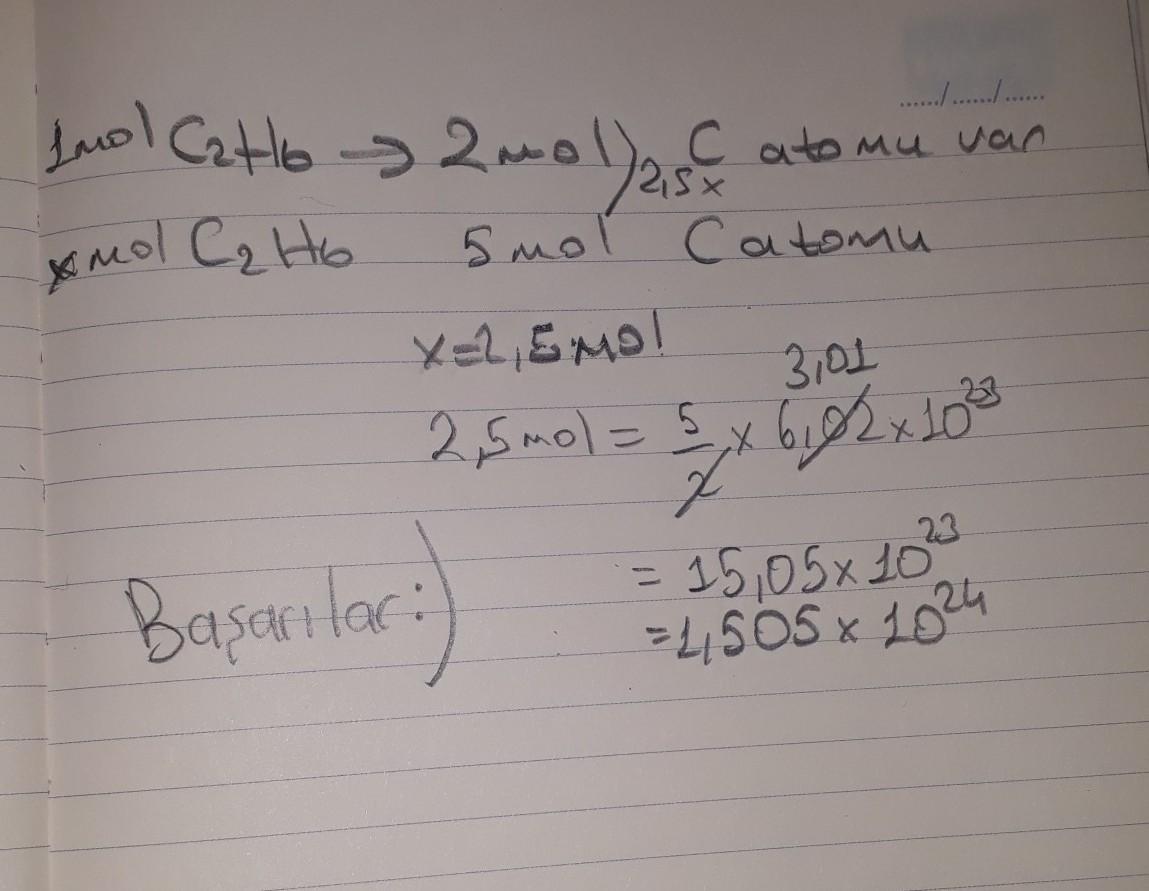 ....../....../......
1mol C2H6 → 2mol) 2,5x C atomu var
xmol C2H6 5mol C atomu
x=2,5mol
3,01
2,5mol = 5/2 x 6,02 x 10^23
= 15,05 x 10^23
= 1,505 x 10^24
Başarılar:)